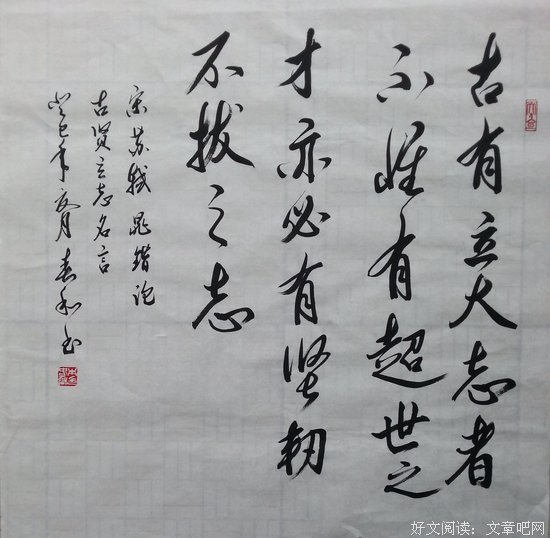 古有立大志者
不惟有超世之
才亦必有坚韧
不拔之志
宋苏轼晁错论
古贤立志名言
癸巳年 春和书
好文阅读：文章吧网